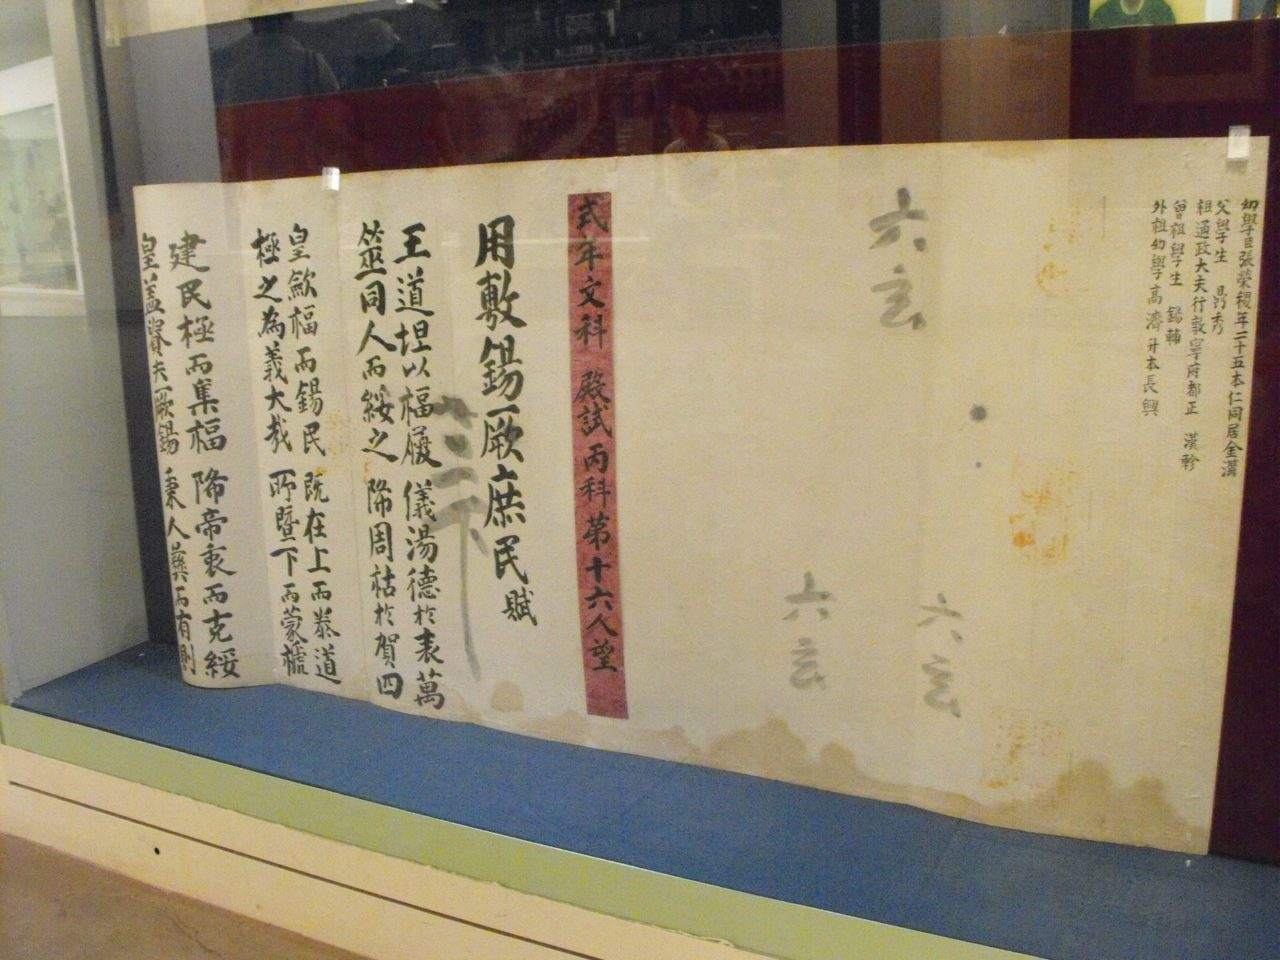 幼學臣張榮稷年二十五本仁同居金溝
父學生 昺秀
祖通政大夫行敦寧府都正 漢軫
曾祖學生 錫輔
外祖幼學高濟升本長興
六玄
六玄
六玄
式年文科 殿試丙科第十六人望
用敷錫厥庶民賦
三下
王道坦以福履 儀湯德於表萬
筮同人而綏之 降周祜於賀四
皇歛福而錫民 既在上而恭道
極之為義大哉 所暨下而蒙
建民極而集福 降帝衷而克綏
皇蓋賚夫厥錫 秉人彝而有則